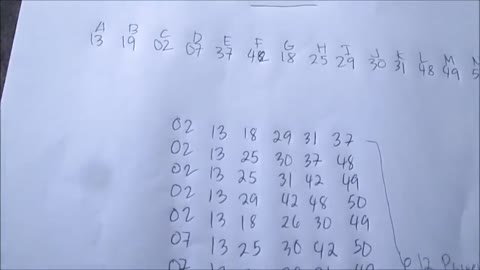 A B C D E F G H I J K L M N
13 19 02 07 37 42 18 25 29 30 31 48 49
02 13 18 29 31 37
02 13 25 30 37 48
02 13 25 31 42 49
02 13 29 42 48 50
02 13 18 26 30 49
07 13 25 30 42 50
07 13